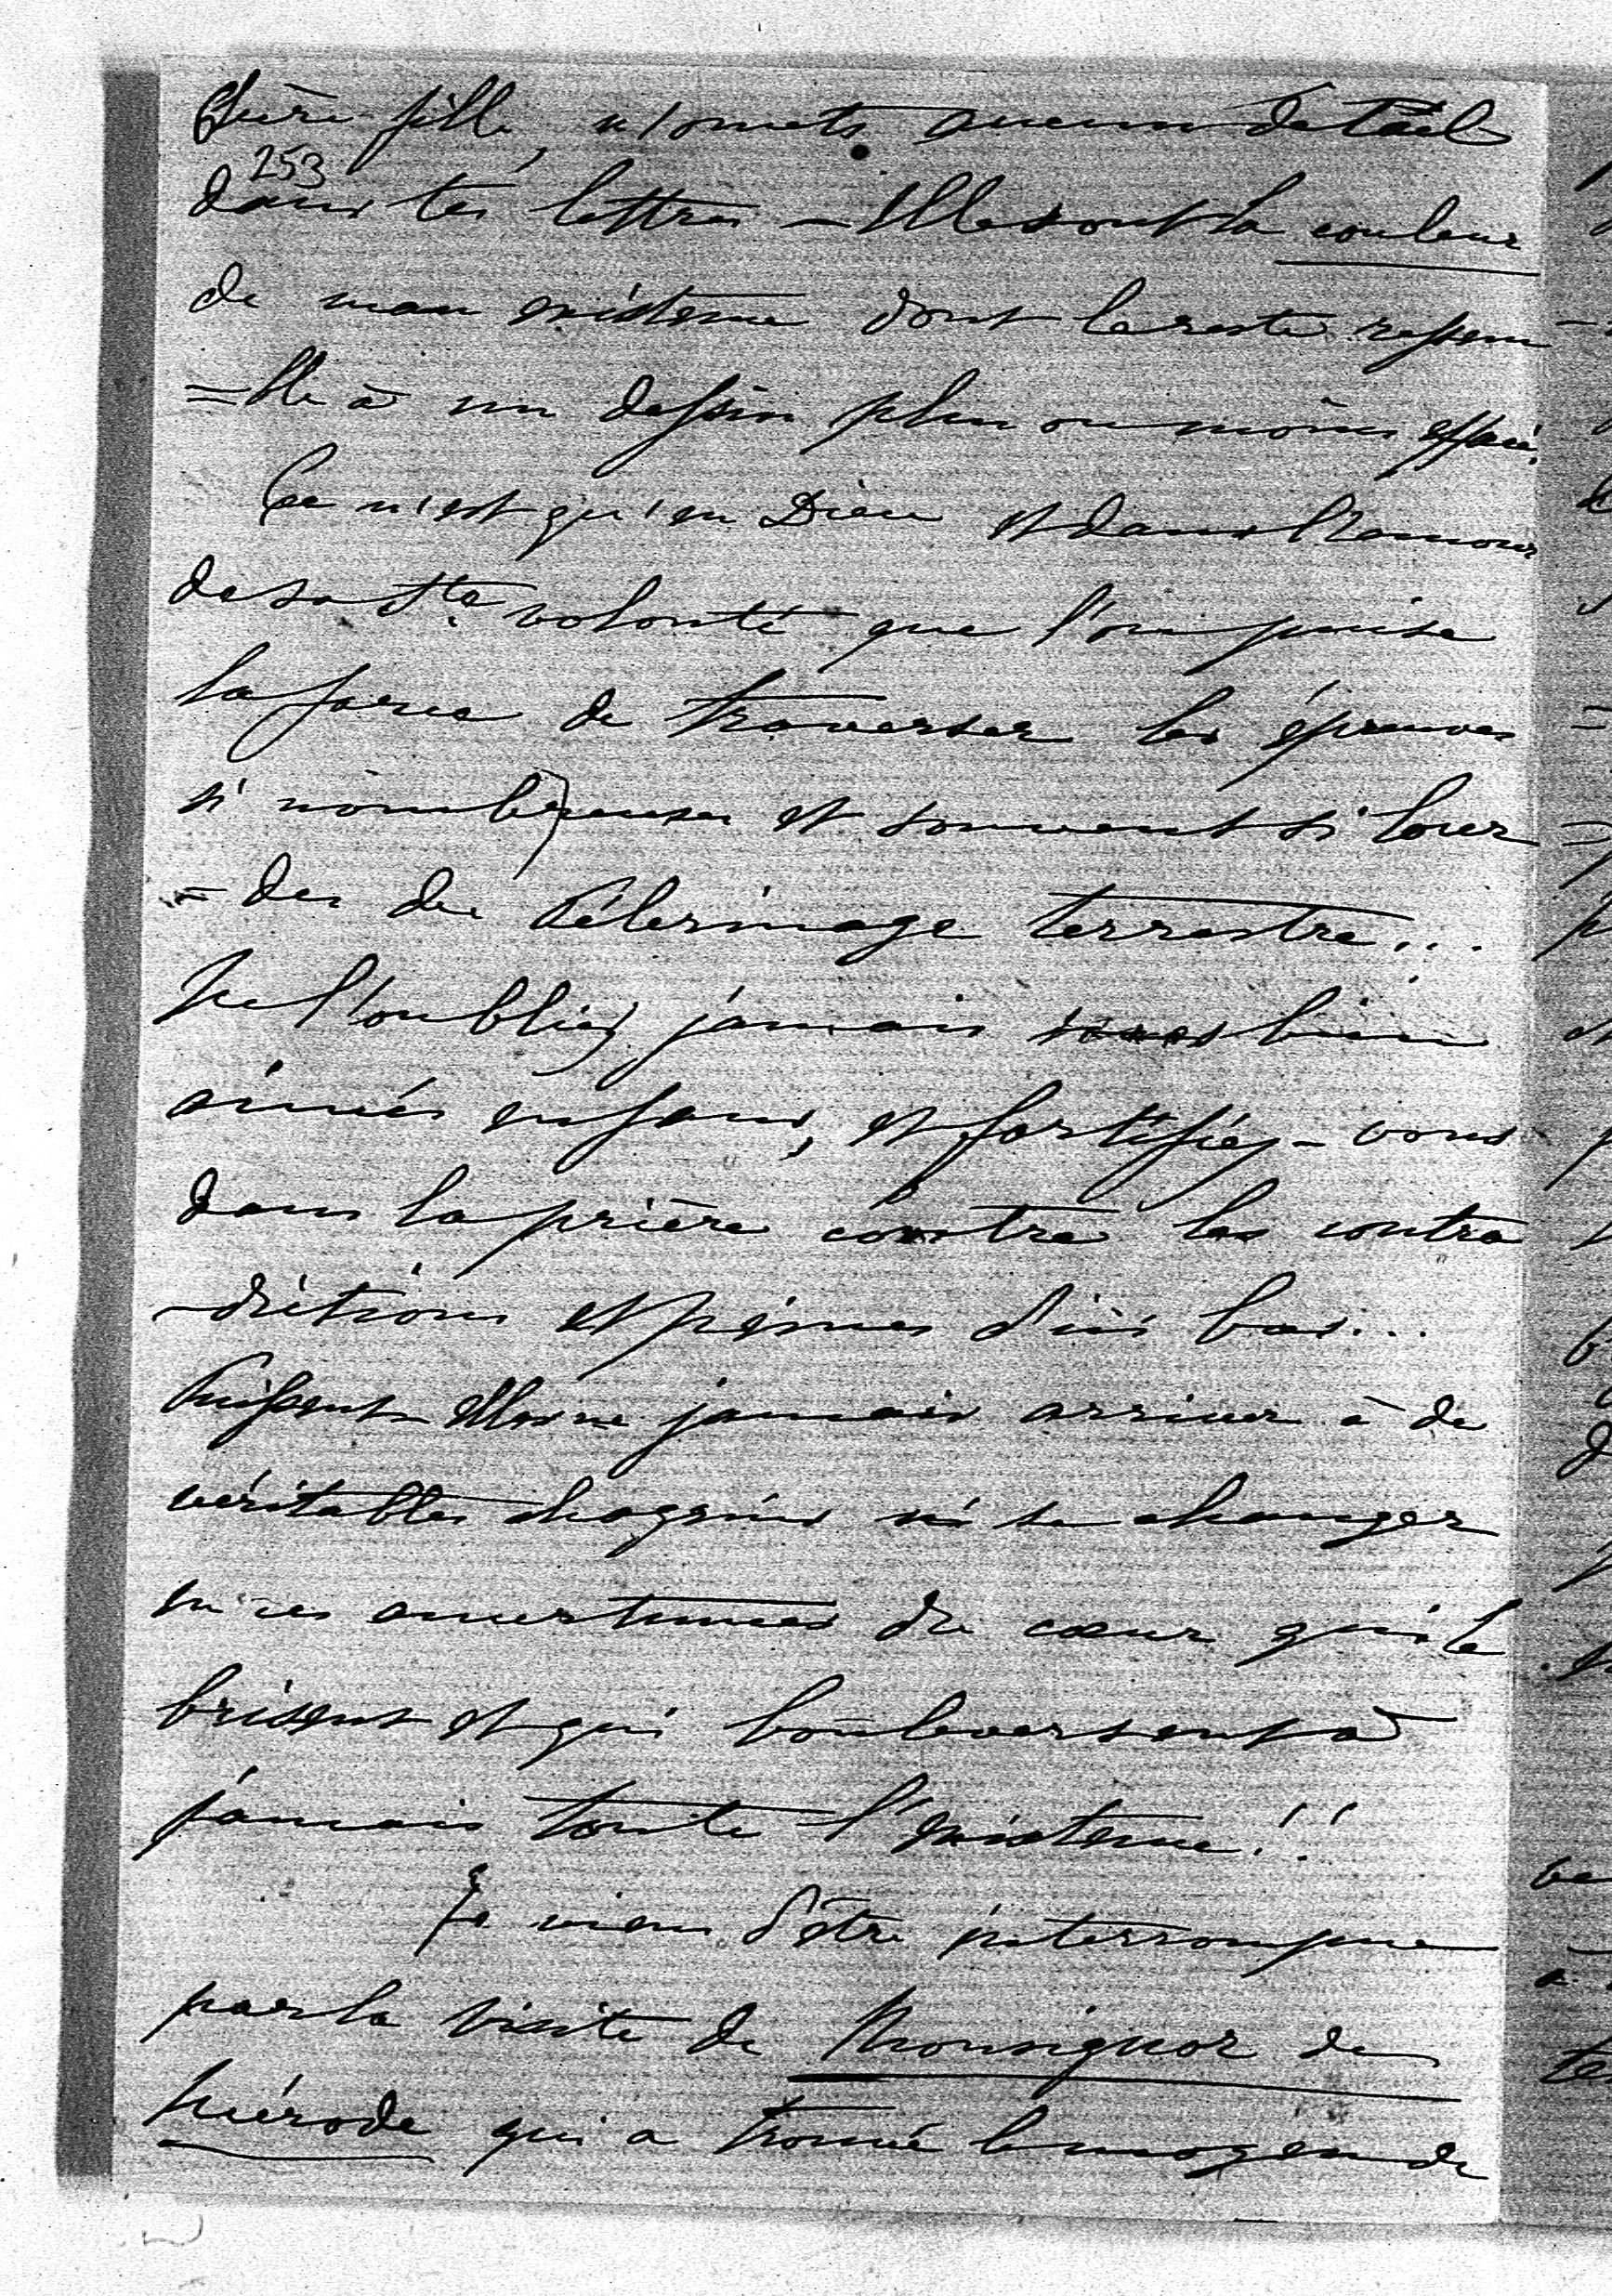 Chère fille, n'omets aucun détail
253
dans tes lettres – Elles sont la couleur
de mon existence dont le reste ressem
=ble à un dessin plus ou moins effacé.
Ce n'est qu'en Dieu et dans l'amour
de sa Ste volonté que l'on puise
la force de traverser les épreuves
si nombreuses et souvent si lour
=des du Pélerinage terrestre...
Ne l'oubliez jamais bien
aimés enfans, et fortifiez-vous
dans la prière contre les contra
-dictions et peines d'ici bas...
Puissent elles ne jamais arriver à de
véritables chagrins ni se changer
en ces amertumes du cœur qui le
brisent et qui bouleversent à
jamais toute l'existence!!
Je viens d'être interrompue
par la visite de Monsignor de
Mérode qui a trouvé le moyen de